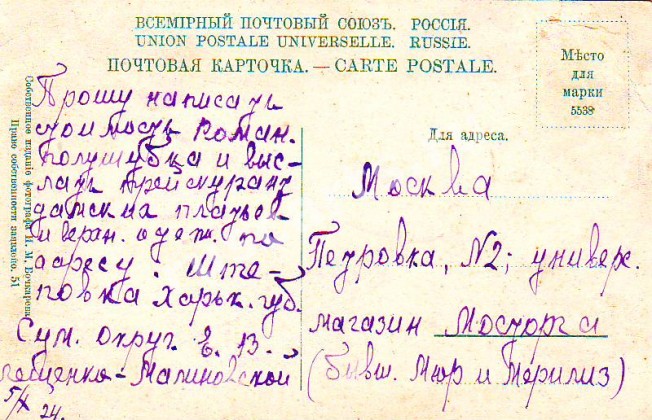 ВСЕМІРНЫЙ ПОЧТОВЫЙ СОЮЗЪ. РОССІЯ.
UNION POSTALE UNIVERSELLE. RUSSIE.
ПОЧТОВАЯ КАРТОЧКА. — CARTE POSTALE.
Мѣсто
для
марки
5538
Для адреса.
Собственное изданіе фотографа Н. М. Бочкарева.
Право собственности заявлено. 51
Прошу написать
стоимость Роман.
полушубка и выс-
лать прейскурант
дамских платьев
и веран. одеж. по
адресу. Ште-
повка Харьк. губ.
Сум. округ. Е. В.
лещенко-Малиновской
5/X 24.
Москва
Петровка, N2; универ.
магазин Мосторга
(бывш. Мюр и Мерилиз)